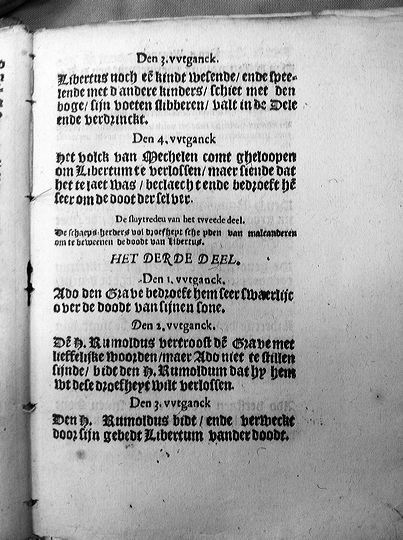 Den 3. vvtganck.
Libertus noch eē kindt wesende/ ende spee-
lende met d andere kinders/ schiet met den
boge/ sijn voeten slibberen/ valt in de Dele
ende verdrinckt.
Den 4. vvtganck
Het volck van Mechelen comt gheloopen
om Libertum te verlossen/ maer siende dat
het te laet was/ beclaecht ende bedroeft hē
seer om de doot der selver.
De sluytreden van het tvveede deel.
De schaeps-herders vol droefheyt sche yden van malcanderen
om te beweenen de doodt van Libertus.
HET DERDE DEEL.
Den 1. vvtganck.
Ado den Grave bedroeft hem seer swaerlijc
over de doodt van sijnen sone.
Den 2. vvtganck.
Dē H. Rumoldus vertroost dē Grave met
lieffelijke woorden/ maer Ado niet te stillen
sijnde/ bidt den H. Rumoldum dat hy hem
wt dese droefheyt wilt verlossen.
Den 3. vvtganck
Den H. Rumoldus bidt/ ende verweckt
door sijn gebedt Libertum vander doodt.